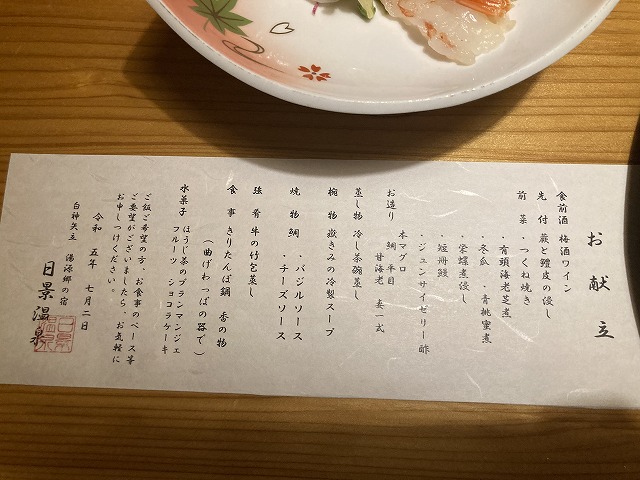 お献立
食前酒 梅酒ワイン
先付 蕨と鱧皮の浸し
前菜 ・つくね焼き
・有頭海老芝煮
・冬瓜 ・青桃蜜煮
・栄螺煮浸し
・短冊鰻
・ジュンサイゼリー酢
お造り 本マグロ
鯛 平目
甘海老 妻一式
蒸し物 冷し茶碗蒸し
椀物 嶽きみの冷製スープ
焼物 鯛 ・バジルソース
・チーズソース
強肴 牛の竹包蒸し
食事 きりたんぽ鍋 香の物
(曲げわっぱの器で)
水菓子 ほうじ茶のブランマンジェ
フルーツ ショコラケーキ
ご飯ご希望の方、お食事のペース等
ご要望がございましたら、お気軽に
お申しつけください。
令和 五年 七月二日
白神矢立 湯源郷の宿
日景温泉